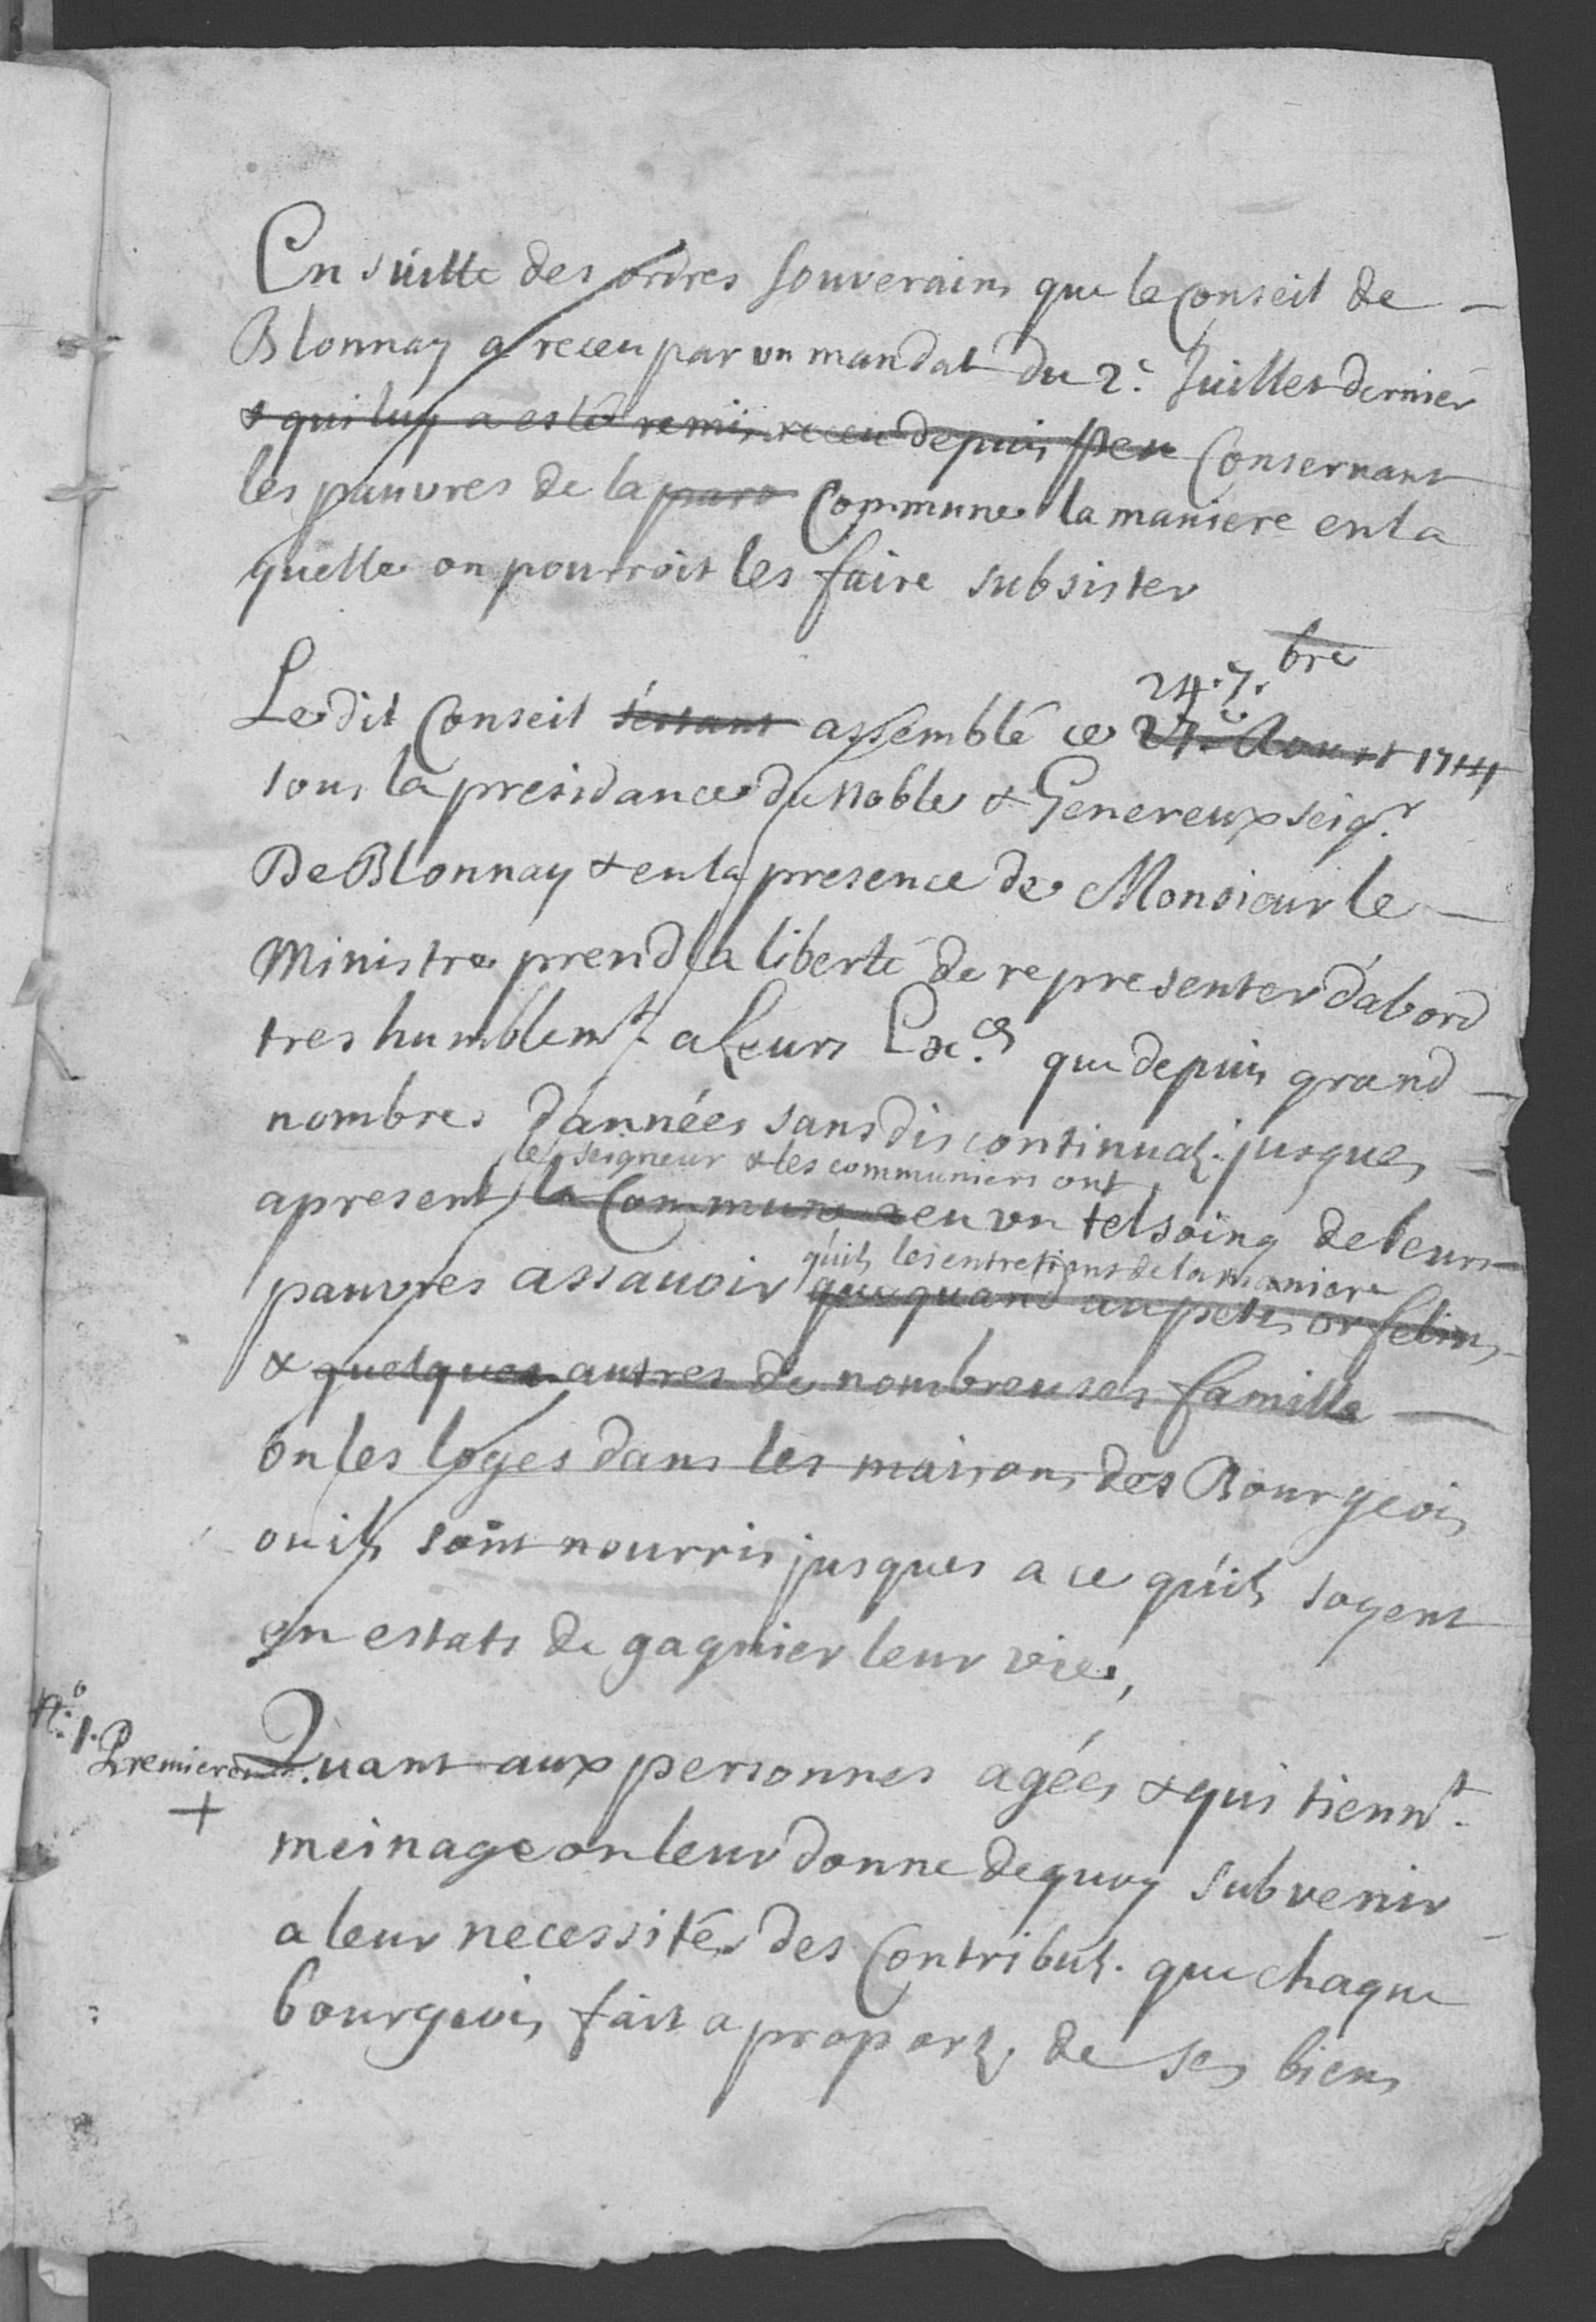 En süitte des ordres souverains que le Conseil de -
Blonnay a receu par un mandat du 2e. Juillet dernier
& qui luy a esté remis receu depuis peu Consernant
les pauvres de la paro Commune la maniere en la
quelle on pourroit les faire subsister
24. 7.bre
Le dit Conseil s'estant assemblé ce 27e Aoust 1714
sous la presidance du Noble & Genereux seigr.
De Blonnay & en la presence de Monsieur le -
Ministre prend la liberté de representer d'abord
tres humblemt. a Leurs Exces. que depuis grand -
nombre d'années sans discontinuaõ. jusques -
le seigneur & les communiers ont
apresent la Commune a eu un tel soing de leurs -
qu'ils les entretient de la maniere
pauvres assavoir que quand au petis orfelins -
& quelques autres de nombreuses famille -
on les loges dans les maisons des Bourgeois
ou ils sont nourris jusques a ce qu'ils soyent
en estats de gagnier leur vie,
No. 1.
Premieremt. Quant aux personnes agées & qui tiennt.
+
meinage on leur donne de quoy subvenir
a leur necessité des Contributõ. que chaque
bourgeois fait a proportõ. de ses biens